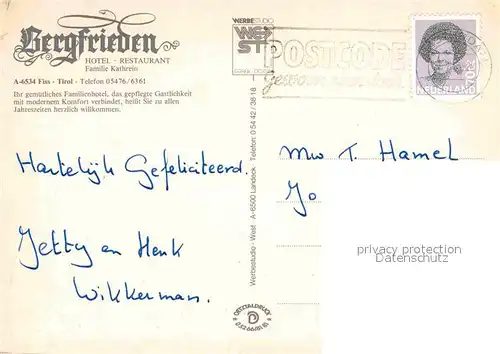 Bergfrieden
HOTEL - RESTAURANT
Familie Kathrein
A-6534 Fiss - Tirol - Telefon 05476/6361
Ihr gemütliches Familienhotel, das gepflegte Gastlichkeit
mit modernem Komfort verbindet, heißt Sie zu allen
Jahreszeiten herzlich willkommen.
Hartelijk Gefeliciteerd.
Jetty en Henk
Wikkerman.
WERBESTUDIO
WEST
Werbestudio - West A-6500 Landeck, Telefon: 0 54 42 / 38 18
POSTCODE
NEDERLAND
70c
Mw T. Hamel
Jo
privacy protection
Datenschutz